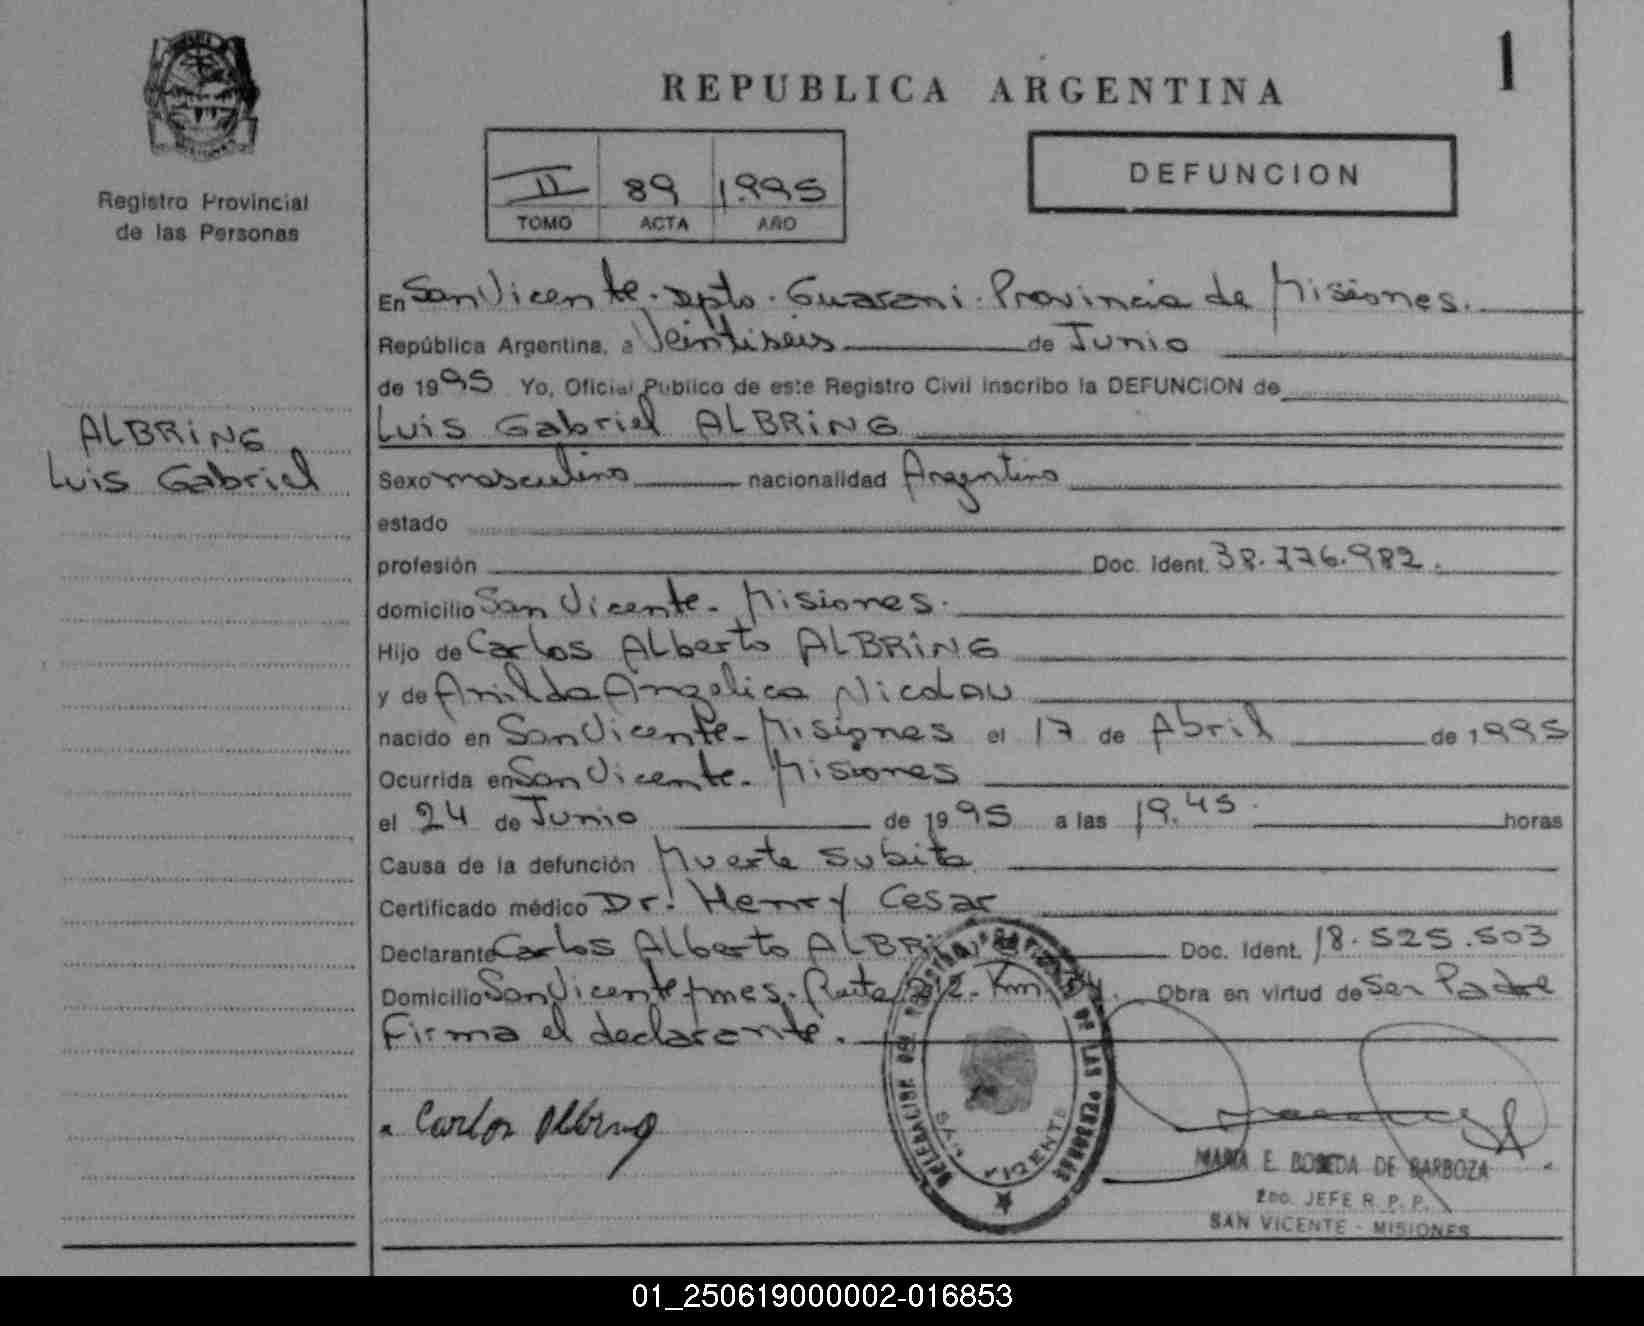 1
REPUBLICA ARGENTINA
Registro Provincial
de las Personas
II 89 1.995
TOMO ACTA AÑO
DEFUNCION
ALBRING
Luis Gabriel
En San Vicente. Dpto. Guarani. Provincia de Misiones.
República Argentina, a Veintiseis de Junio
de 1995 Yo, Oficial Publico de este Registro Civil inscribo la DEFUNCION de
Luis Gabriel ALBRING
Sexo masculino nacionalidad Argentino
estado
profesión Doc. Ident. 38.776.982.
domicilio San Vicente. Misiones.
Hijo de Carlos Alberto ALBRING
y de Anilda Angelica Nicolau
nacido en San Vicente - Misiones el 17 de Abril de 1995
Ocurrida en San Vicente. Misiones
el 24 de Junio de 1995 a las 19.45 horas
Causa de la defunción Muerte Subita
Certificado médico Dr. Henry Cesar
Declarante Carlos Alberto ALBRI Doc. Ident. 18.525.503
Domicilio San Vicente mes. Ruta 212. Km Obra en virtud de Ser Padre
Firma el declarante.
Carlos Albring
DELEGACION DEL REGISTRO PROVINCIAL DE LAS PERSONAS
SAN VICENTE
MARIA E. BOVEDA DE BARBOZA
2DO. JEFE R. P. P.
SAN VICENTE - MISIONES
01_250619000002-016853